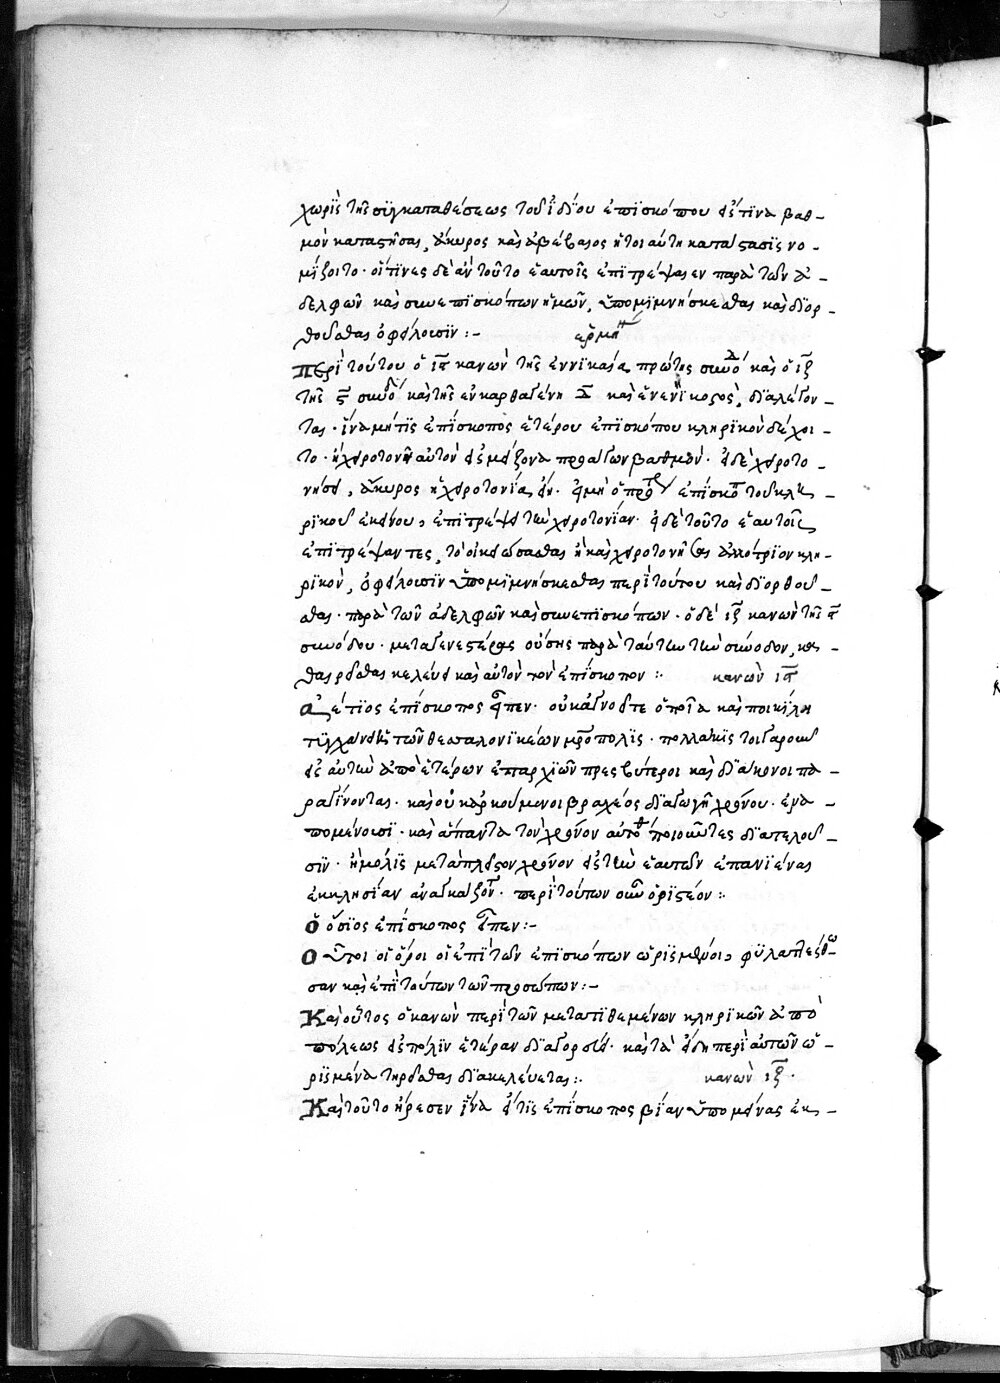 χωρὶς τῆς συγκαταθέσεως τοῦ ἰδίου ἐπισκόπου εἴς τινα βαθ-
μὸν καταστῆσαι, ἄκυρος καὶ ἀβέβαιος ἡ τοιαύτη κατάστασις νο-
μίζοιτο· οἵτινες δὲ ἂν τοῦτο ἑαυτοῖς ἐπιτρέψαιεν παρὰ τῶν ἀ-
δελφῶν καὶ συνεπισκόπων ἡμῶν, ὑπομιμνήσκεσθαι καὶ διορ-
θοῦσθαι ὀφείλουσιν:- ἑρμη
Περὶ τούτου ὁ ιε κανὼν τῆς ἐν νικαία πρώτης συνόδ καὶ ὁ ιζ
τῆς ς συνόδ καὶ τῆς ἐν καρθαγένη καὶ ἐνενηκοστὸς, διαλέγον-
ται· ἵνα μήτις ἐπίσκοπος ἑτέρου ἐπισκόπου κληρικὸν δέχοι-
το· ἢ χειροτονῆ αὐτὸν εἰς μείζονα προάγων βαθμὸν· εἰ δὲ χειροτο-
νήσει, ἄκυρος ἡ χειροτονία εἴη. εἰ μὴ ὁ πρῶτος ἐπίσκοπ τοῦ κλη-
ρικοῦ ἐκείνου, ἐπιτρέψει τὴν χειροτονίαν· εἰ δὲ τοῦτο ἑαυτοῖς
ἐπιτρέψαντες, τὸ οἰκειώσασθαι ἢ καὶ χειροτονῆσαι ἀλλότριον κλη-
ρικὸν, ὀφείλουσιν ὑπομιμνήσκεσθαι περὶ τούτου καὶ διορθοῦ-
σθαι· παρὰ τῶν ἀδελφῶν καὶ συνεπισκόπων· ὁ δὲ ιζ κανὼν τῆς ς
συνόδου· μεταγενεστέρας οὔσης παρὰ ταύτην τὴν σύνοδον, κα-
θαιρεῖσθαι κελεύει καὶ αὐτὸν τὸν ἐπίσκοπον:· κανὼν ις
Ἀέτιος ἐπίσκοπος εἶπεν· οὐκ ἀγνοεῖτε ὁποία καὶ ποικίλη
τυγχάνει ἡ τῶν θεσσαλονικέων μρόπολις· πολλάκις τοιγαροῦν
εἰς αὐτὴν ἀπὸ ἑτέρων ἐπαρχιῶν πρεσβύτεροι καὶ διάκονοι πα-
ραγίνονται· καὶ οὐκ ἀρκούμενοι βραχέος διαγωγῆ χρόνου· ἐνα-
πομένουσι· καὶ ἅπαντα τὸν χρόνον αὐτόθι ποιοῦντες διατελοῦ-
σιν· ἢ μόλις μετὰ πλεῖστον χρόνον εἰς τὴν ἑαυτῶν ἐπανιέναι
ἐκκλησίαν ἀναγκάζοντ· περὶ τούτων οὖν ὁριστέον:·
Ὁ ὅσιος ἐπίσκοπος εἶπεν:-
Οὗτοι οἱ ὅροι οἱ ἐπὶ τῶν ἐπισκόπων ὡρισμένοι, φυλαττέσθω-
σαν καὶ ἐπὶ τούτων τῶν προσώπων:-
Καὶ οὗτος ὁ κανὼν περὶ τῶν μετατιθεμένων κληρικῶν ἀπὸ
πόλεως εἰς πόλιν ἑτέραν διαγορεύει· καὶ τὰ ἤδη περὶ αὐτῶν ὡ-
ρισμένα τηρεῖσθαι διακελεύεται:· κανὼν ιζ·
Καὶ τοῦτο ἤρεσεν ἵνα εἴ τις ἐπίσκοπος βίαν ὑπομείνας ἐκ-